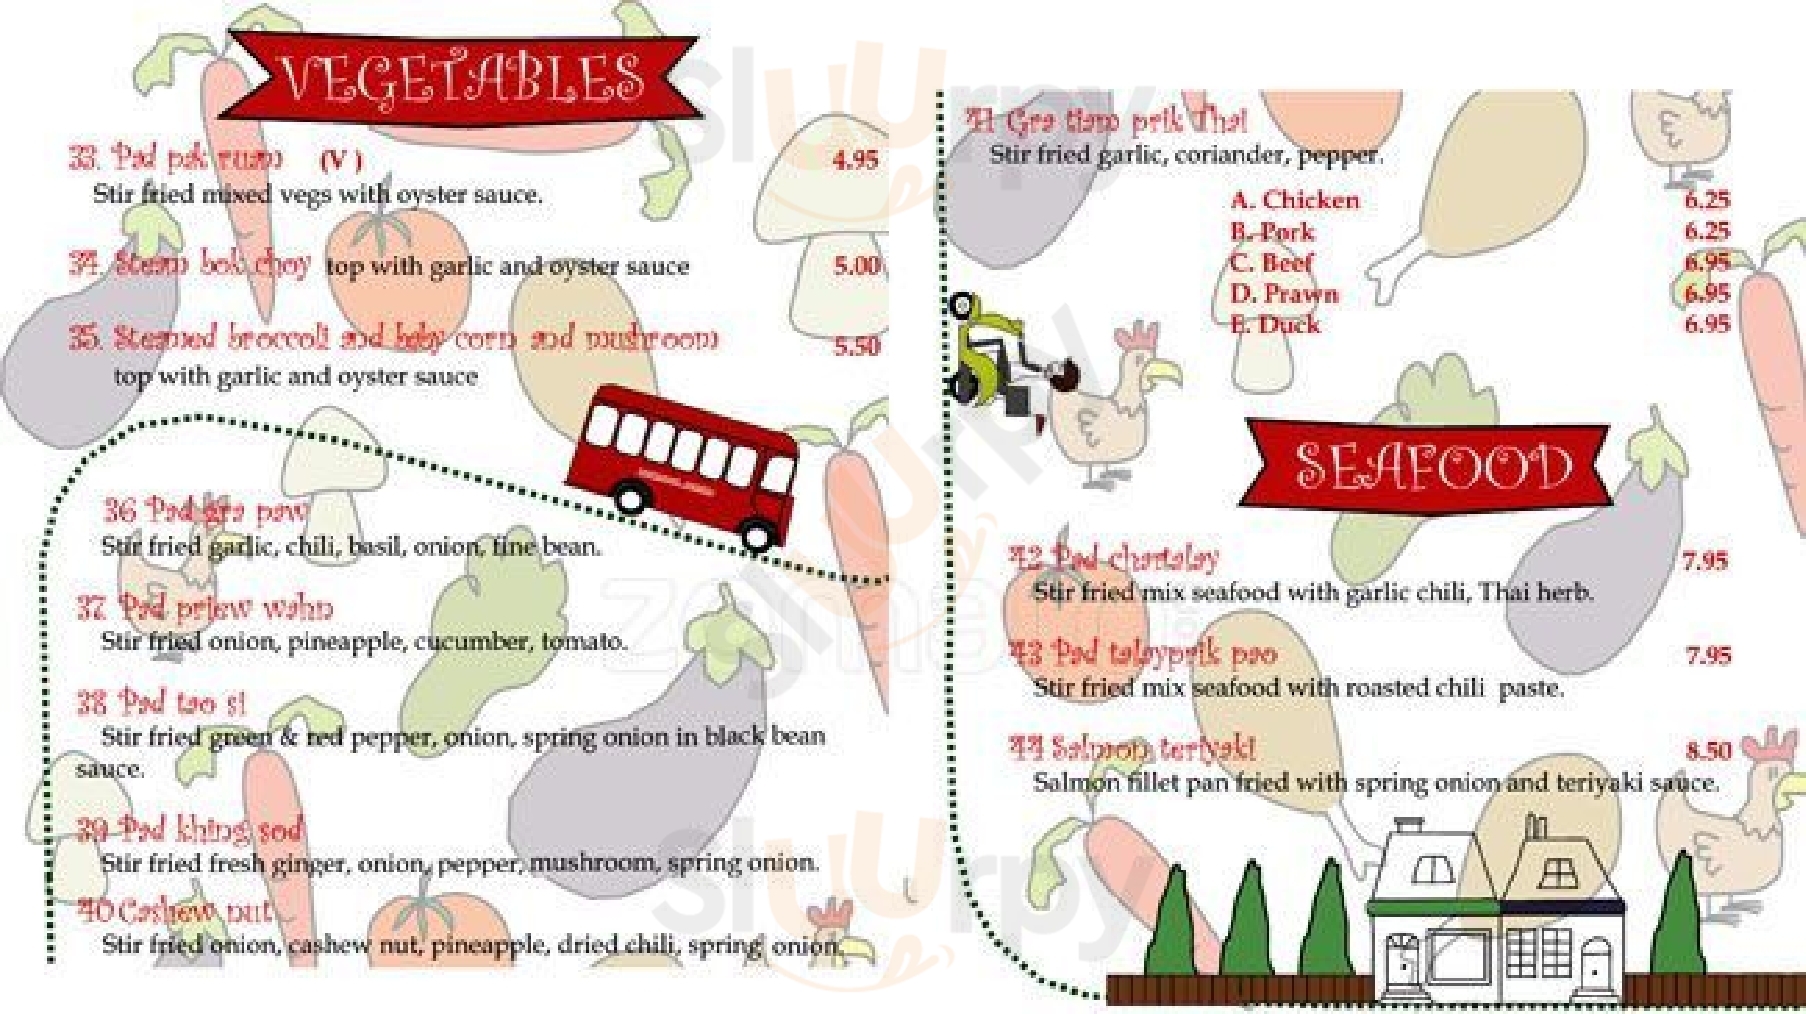 VEGETABLES
33. Pad pak ruam (V )
4.95
Stir fried mixed vegs with oyster sauce.
34. Steam bok choy top with garlic and oyster sauce
5.00
35. Steamed broccoli and baby corn and mushroom
5.50
top with garlic and oyster sauce
36 Pad gra paw
Stir fried garlic, chili, basil, onion, fine bean.
37 Pad priew wahn
Stir fried onion, pineapple, cucumber, tomato.
38 Pad tao si
Stir fried green & red pepper, onion, spring onion in black bean
sauce.
39 Pad khing sod
Stir fried fresh ginger, onion, pepper, mushroom, spring onion.
40 Cashew nut
Stir fried onion, cashew nut, pineapple, dried chili, spring onion.
41 Gra tiam prik Thai
Stir fried garlic, coriander, pepper.
A. Chicken 6.25
B. Pork 6.25
C. Beef 6.95
D. Prawn 6.95
E. Duck 6.95
SEAFOOD
42 Pad chartalay 7.95
Stir fried mix seafood with garlic chili, Thai herb.
43 Pad talayprik pao 7.95
Stir fried mix seafood with roasted chili paste.
44 Salmon teriyaki 8.50
Salmon fillet pan fried with spring onion and teriyaki sauce.
Slurpy
Slurpy
Slurpy